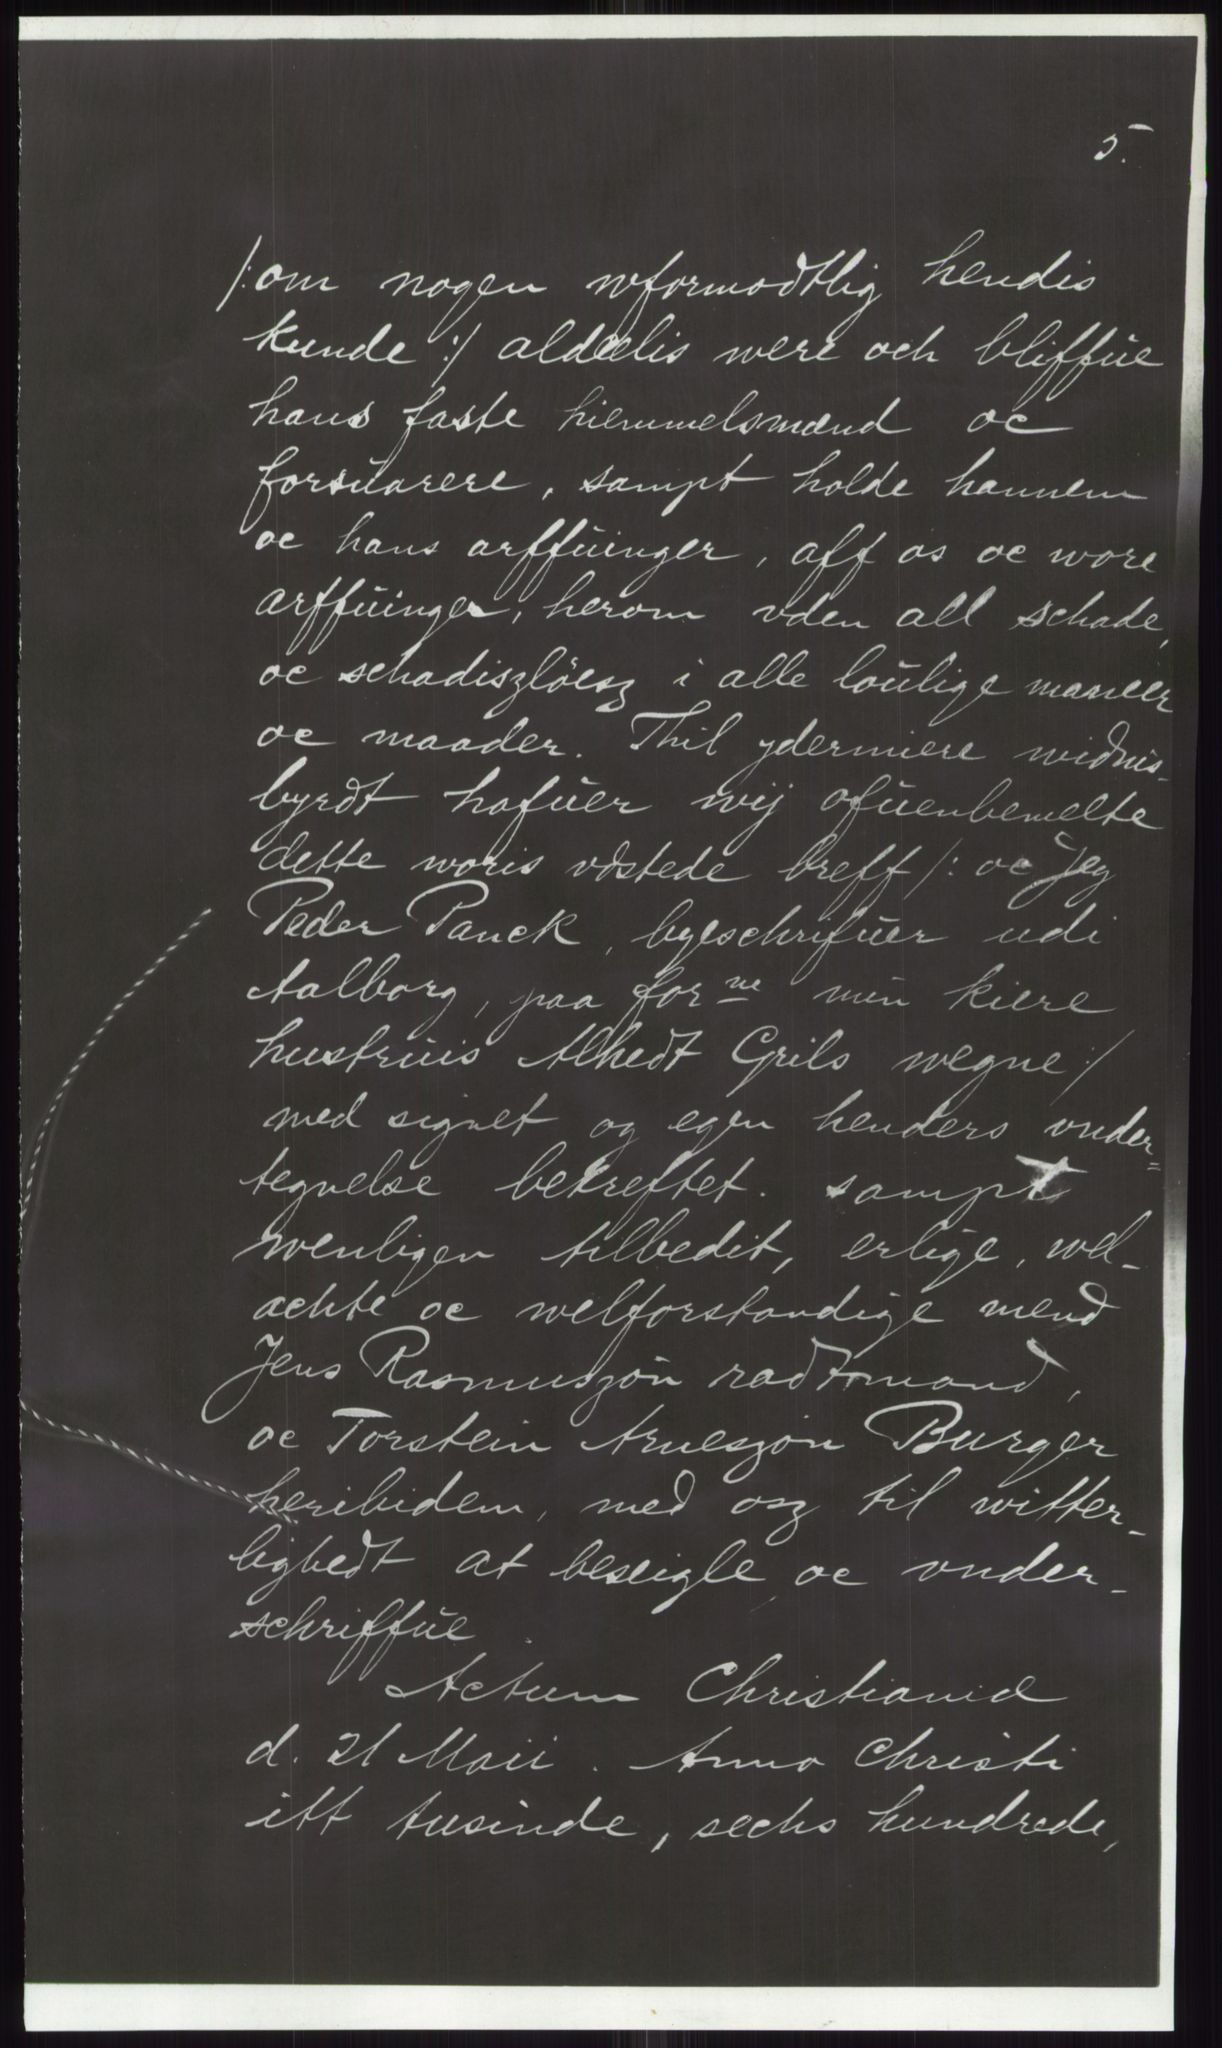 5.
/: om nogen wformodtlig hendis
kunde :/ aldelis were och bliffue
hans faste hiemmelsmænd oc
forsuarere, sampt holde hannem
oc hans arffuinger, aff os oc wore
arffuinger, herom vden all schade,
oc schadiszlöesz i alle loulige maneer
oc maader. Thil ydermiere widnis-
byrdt hafuer wij ofuenbemelte
dette woris vdstede breff /: oc Jeg
Peder Panck, byeschrifuer udi
Aalborg, paa forne min kiere
hustruis Alhedt Grils wegne :/
med signet og egen henders vnder=
tegnelse bekreftet. sampt
wenligen tilbedit, erlige, wel-
achte oc welforstandige mend
Jens Rasmuszön radtmand,
oc Torstein Arneszön Burger
heribidem, med osz til witter-
lighedt at beseigle oc vnder-
schriffue.
Actum Christianiæ
d. 21 Maii. Anno Christi
itt tusinde, sechs hundrede,